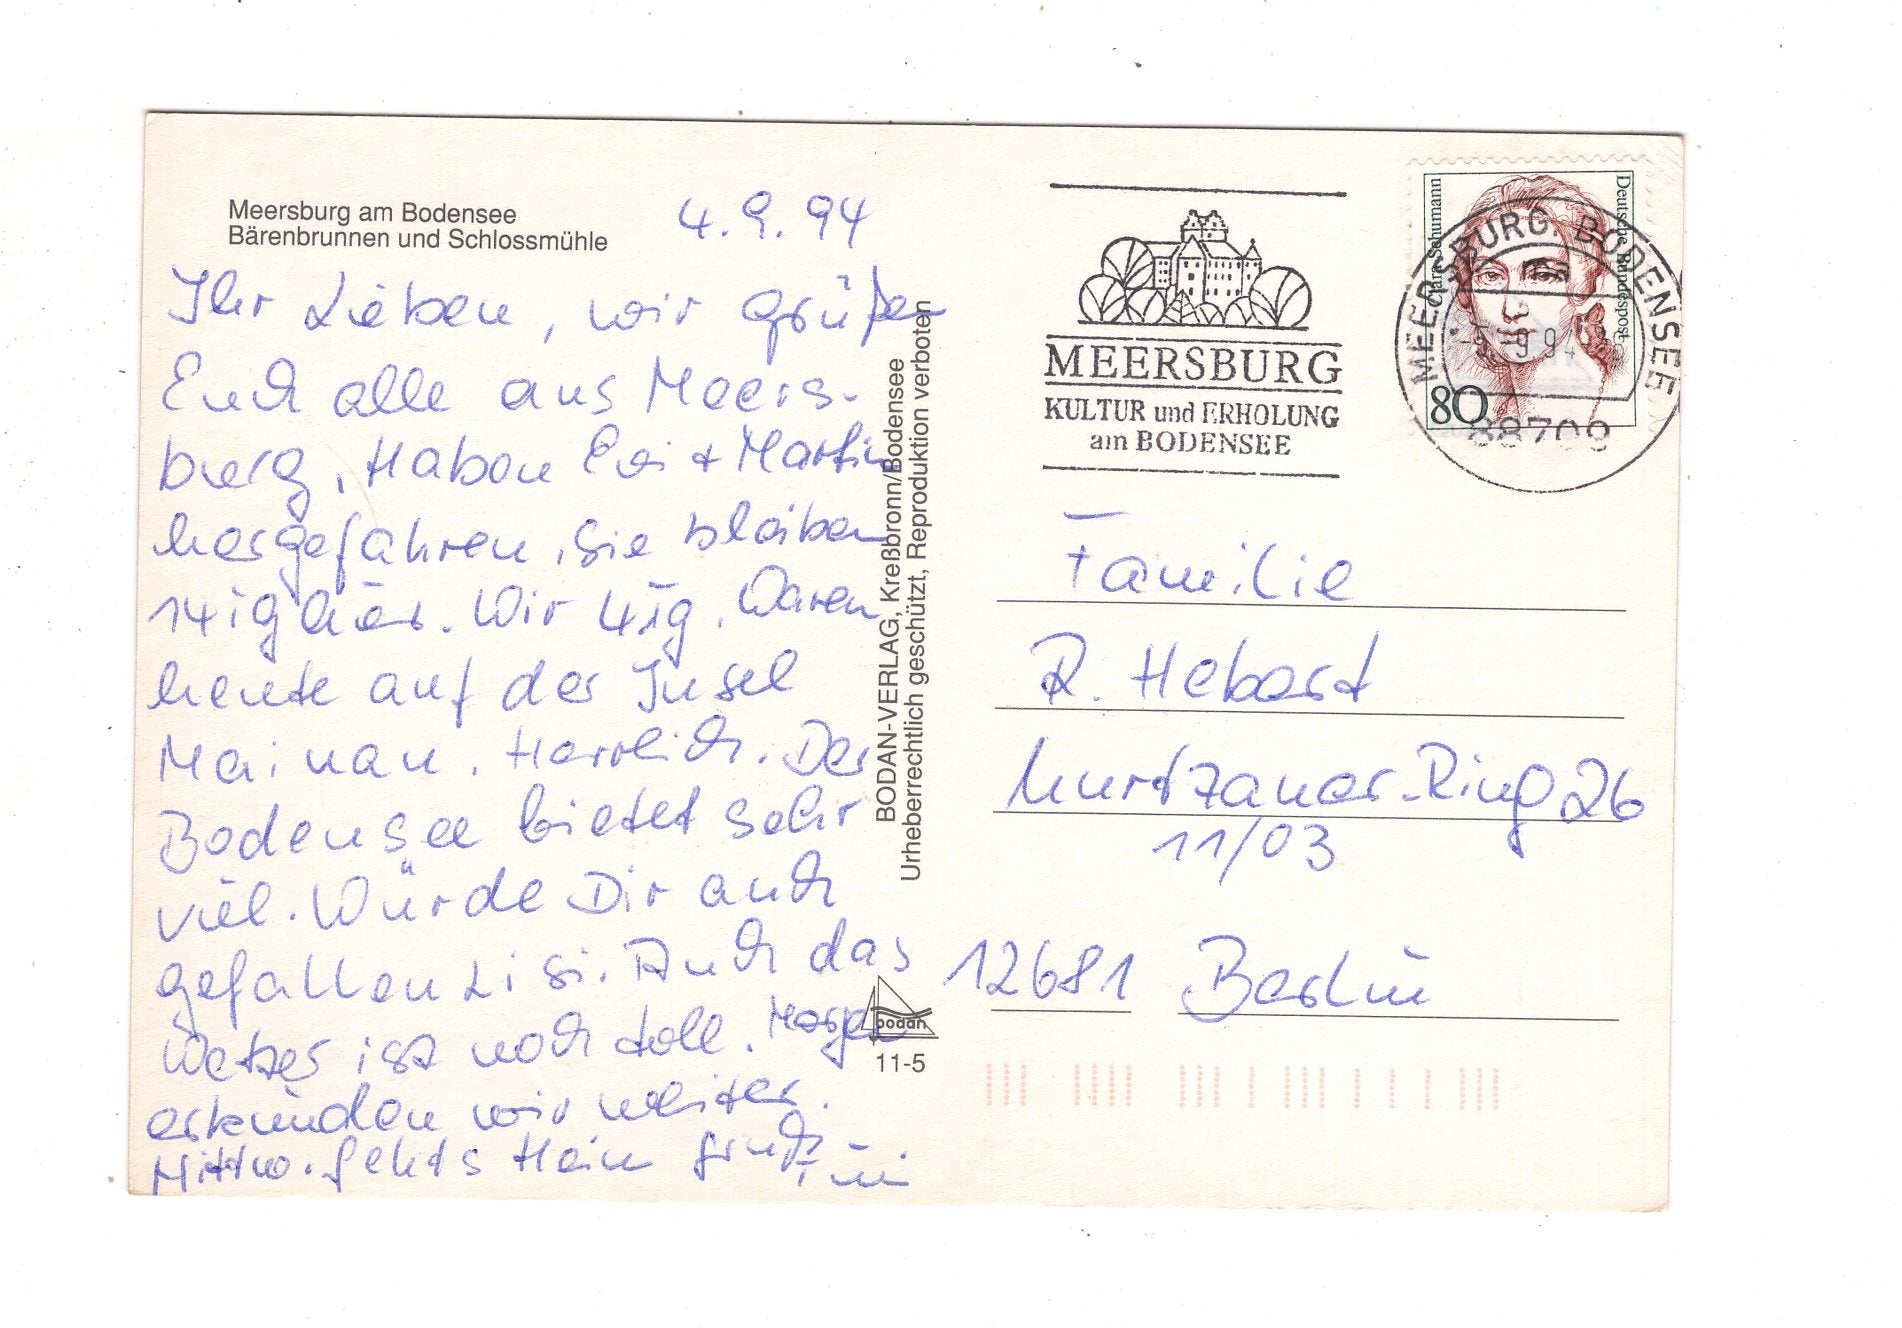 Meersburg am Bodensee
Bärenbrunnen und Schlossmühle
4.9.94
Ihr Lieben, wir grüßen
Euch alle aus Meers-
burg, Haben Evi + Martin
hergefahren, sie bleiben
14 Tg hier. Wir 4 Tg. Waren
heute auf der Insel
Mainau. Herrlich. Der
Bodensee bietet sehr
viel. Würde Dir auch
gefallen Lisi. Auch das
Wetter ist noch toll. Morgen
erkunden wir weiter.
Mittwo. gehts Heim
BODAN-VERLAG, Kreßbronn/Bodensee
Urheberrechtlich geschützt, Reproduktion verboten
bodan
11-5
MEERSBURG
KULTUR und ERHOLUNG
am BODENSEE
Clara Schumann
Deutsche Bundespost
80
MEERSBURG, BODENSEE
88709
Familie
R. Hebert
-Ring 26
11/03
12681 Berlin